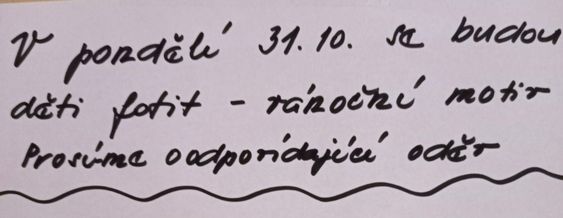 V pondělí 31.10. se budou
děti fotit - vánoční motiv
Prosíme o odpovídající oděv